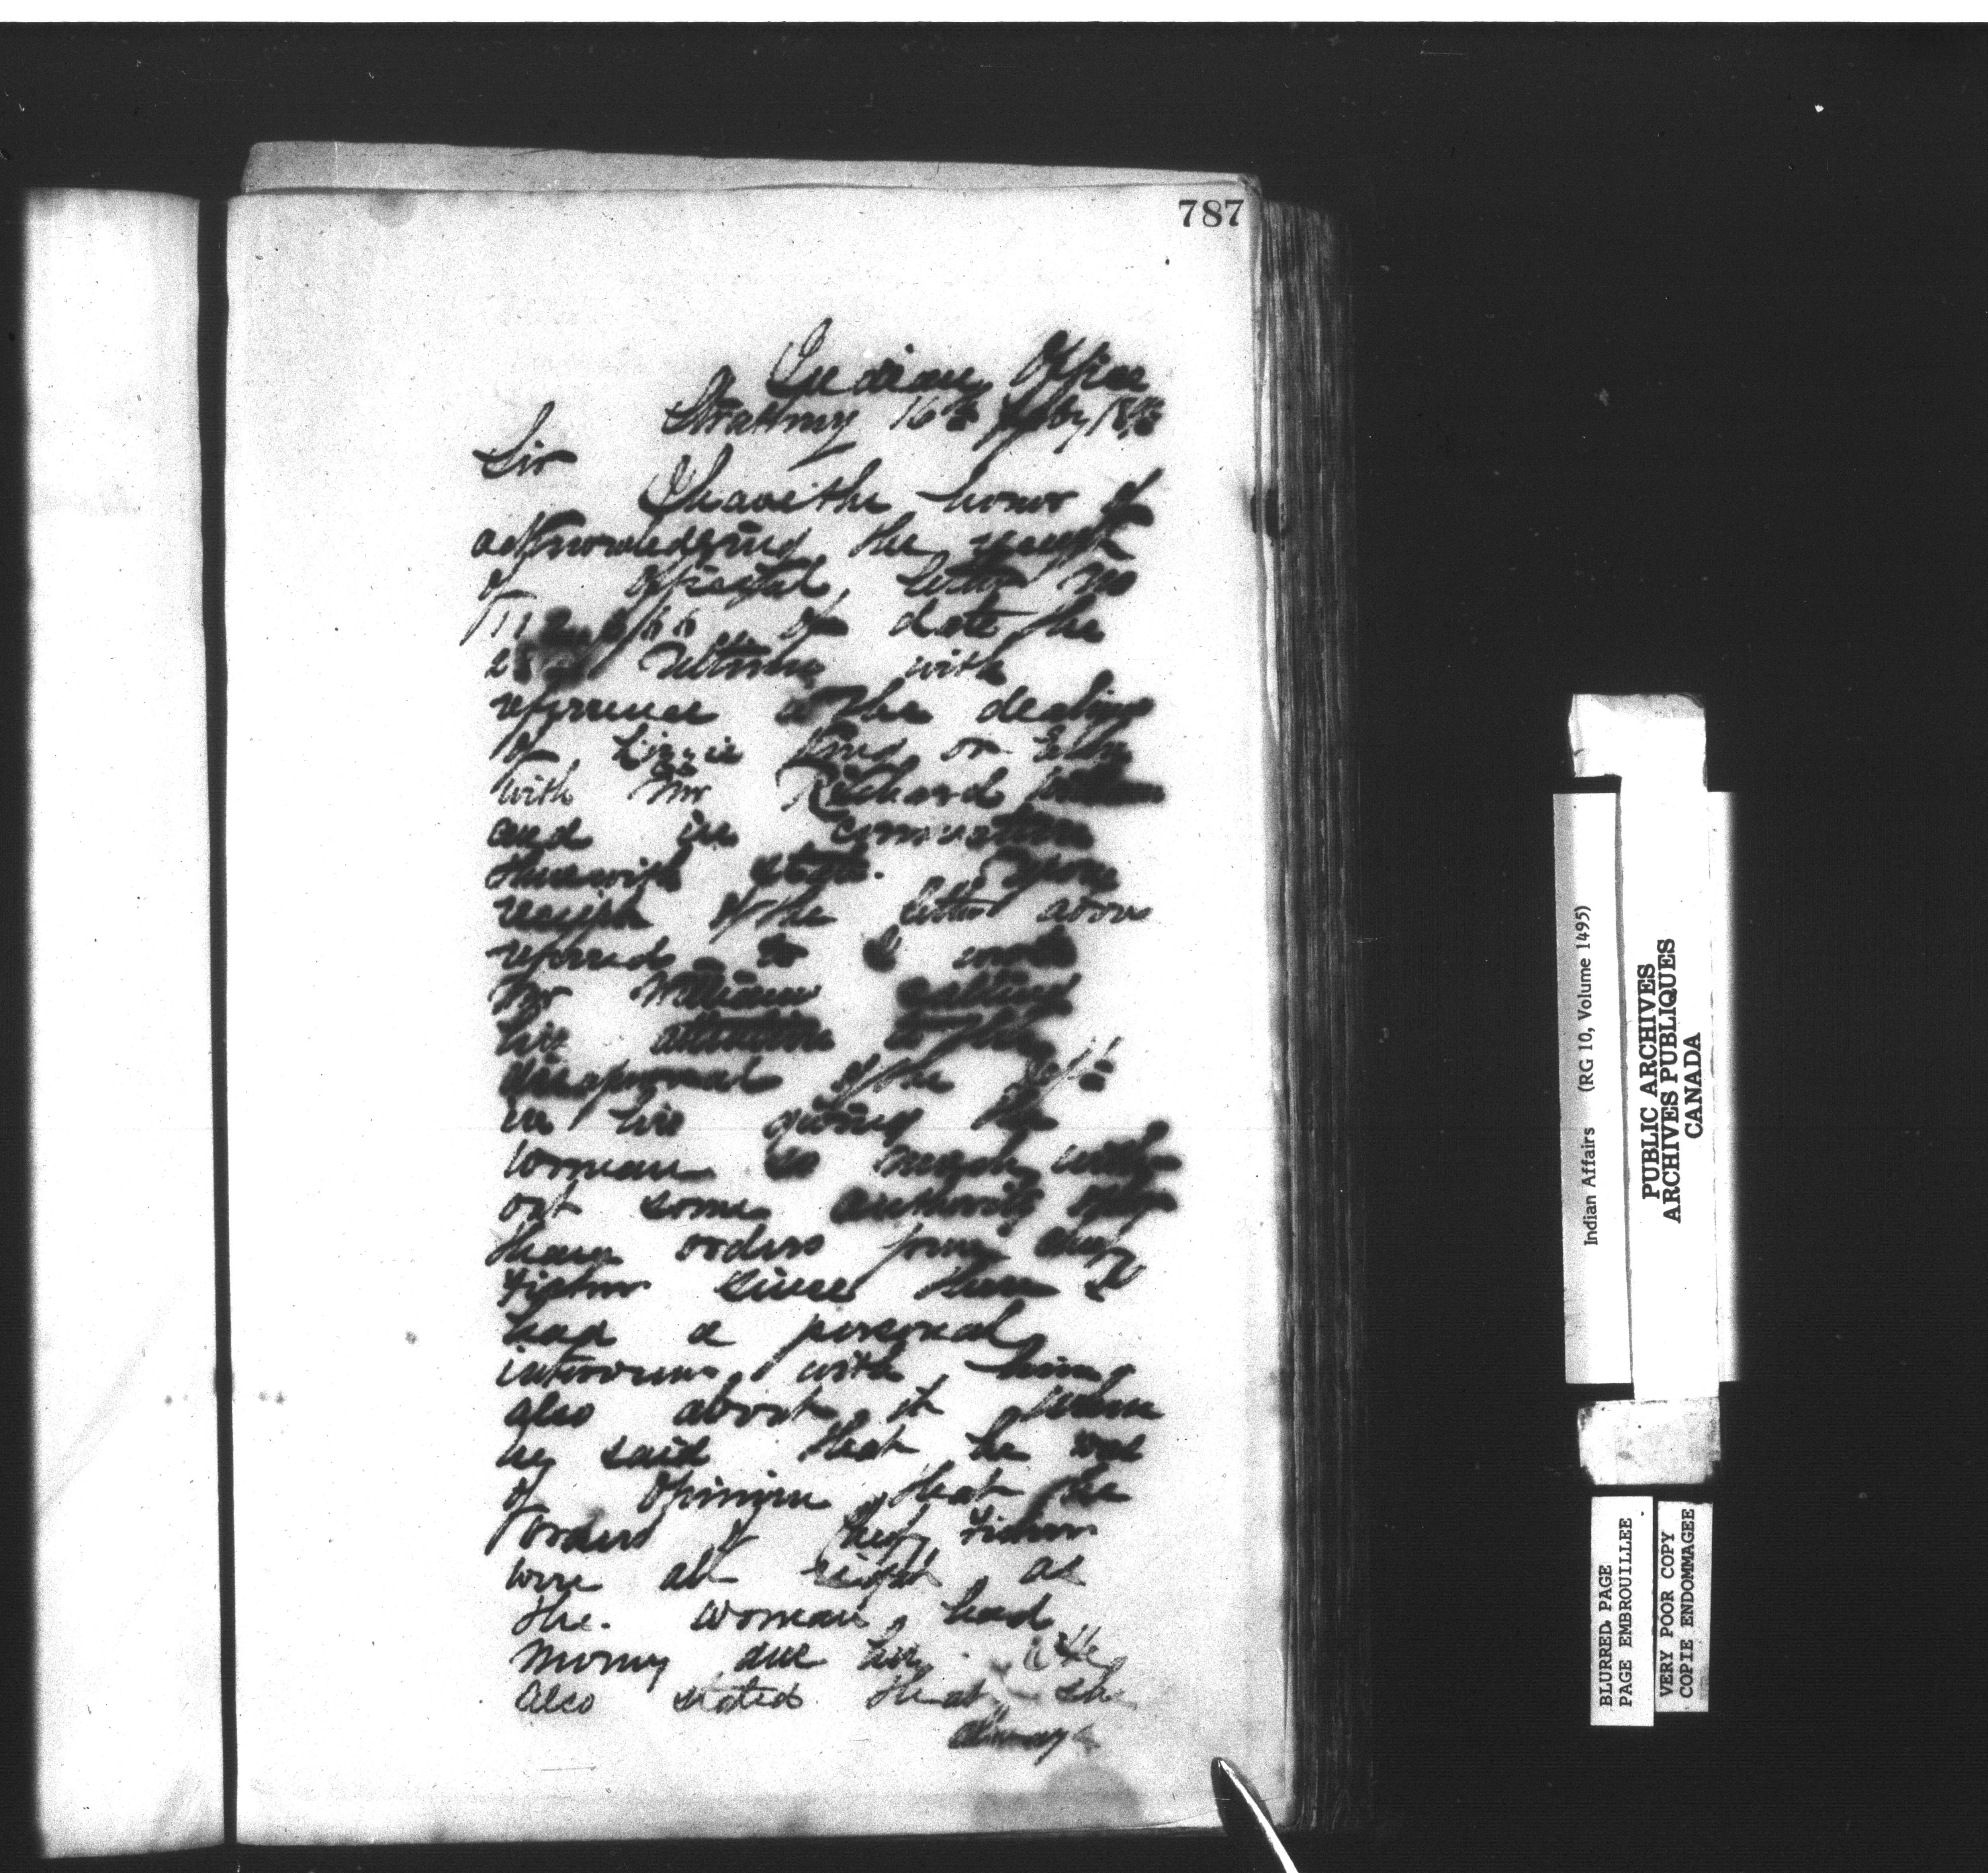 787
Indian Office
Strathroy 16th Feby 18
Sir
I have the honor of
acknowledging the receipt
of official letter No
of date the
ultimo with
reference to the dealings
of Lizzie or
with Mr Richard
and in
therewith state. Upon
receipt of the letter above
referred to I wrote
Mr William calling
his attention to the
disapproval of the Dept
in his giving the
woman so much with
out some authority other
than orders from Chief
Fisher since then I
had a personal
interview with him
also about it when
he said that he was
of opinion that the
orders of Chief Fisher
were all right as
the woman had
money due her. He
also stated that she
always
Indian Affairs (RG 10, Volume 1495)
PUBLIC ARCHIVES
ARCHIVES PUBLIQUES
CANADA
BLURRED PAGE
PAGE EMBROUILLEE
VERY POOR COPY
COPIE ENDOMMAGEE